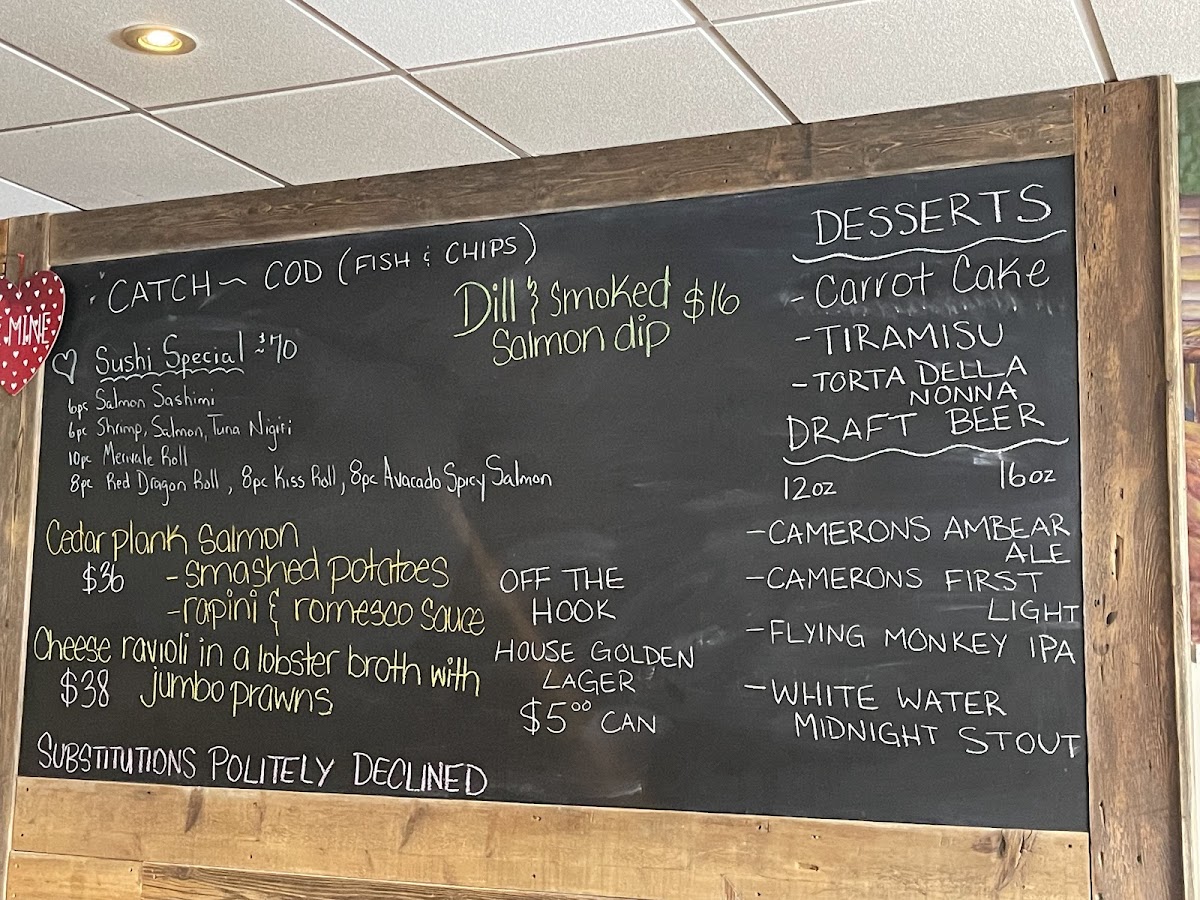 CATCH ~ COD (FISH & CHIPS)
Dill & Smoked $16
Salmon dip
MINE
Sushi Special ~ $70
6pc Salmon Sashimi
6pc Shrimp, Salmon, Tuna Nigiri
10pc Merivale Roll
8pc Red Dragon Roll, 8pc Kiss Roll, 8pc Avacado Spicy Salmon
Cedar plank Salmon
$36 - smashed potatoes
- rapini & romesco sauce
Cheese ravioli in a lobster broth with
$38 jumbo prawns
SUBSTITUTIONS POLITELY DECLINED
OFF THE
HOOK
HOUSE GOLDEN
LAGER
$5.00 CAN
DESSERTS
- Carrot Cake
- TIRAMISU
- TORTA DELLA
NONNA
DRAFT BEER
12oz 16oz
- CAMERONS AMBEAR
ALE
- CAMERONS FIRST
LIGHT
- FLYING MONKEY IPA
- WHITE WATER
MIDNIGHT STOUT